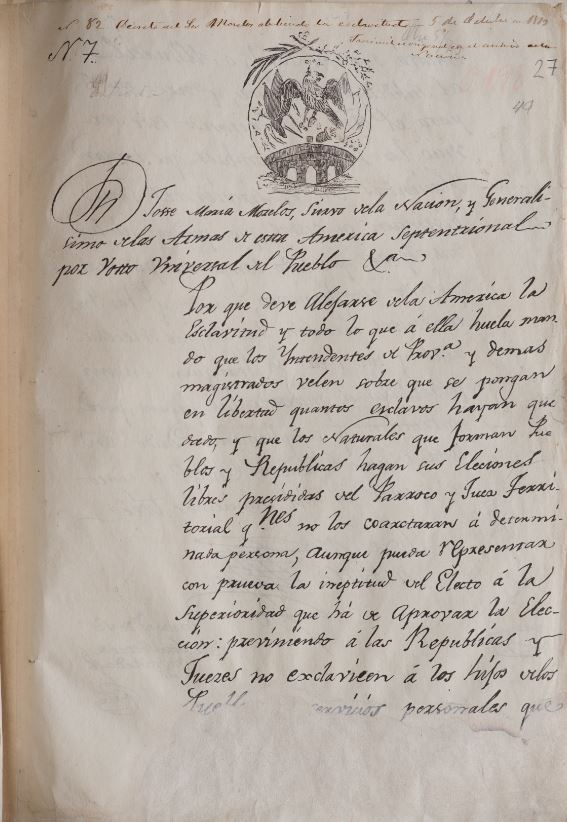 N. 82 Decreto del Sr. Morelos aboliendo la esclavitud 5 de Octubre de 1813
N. 7.
27
49
Dn Josse Maria Morelos, Siervo dela Nacion, y Generali-
simo delas Armas de esta America Septentrional
por Votto Vniversal del Pueblo &a
Por que deve Alejarse dela America la
Esclavitud y todo lo que á ella huela man-
do que los Yntendentes de Prov.a y demas
magistrados velen sobre que se pongan
en libertad quantos esclavos hayan que
dado, y que los Naturales que forman Pue
blos y Republicas hagan sus Eleciones
libres presididas del Parroco y Juez Terri-
torial q.nes no los coartaran á determi-
nada persona, Aunque pueda representar
con prueva la ineptitud del Electo á la
Superioridad que há de Aprovar la Elec-
ción: previniendo á las Republicas y
Jueces no esclavicen á los hijos delos
servicios personales que